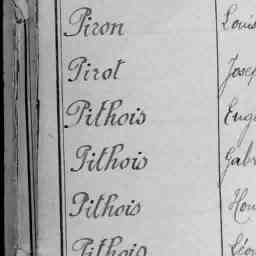 Piron Louis
Pirot Josep
Pithois Eug
Pithois Gabr
Pithois Hon
Pithois Léon